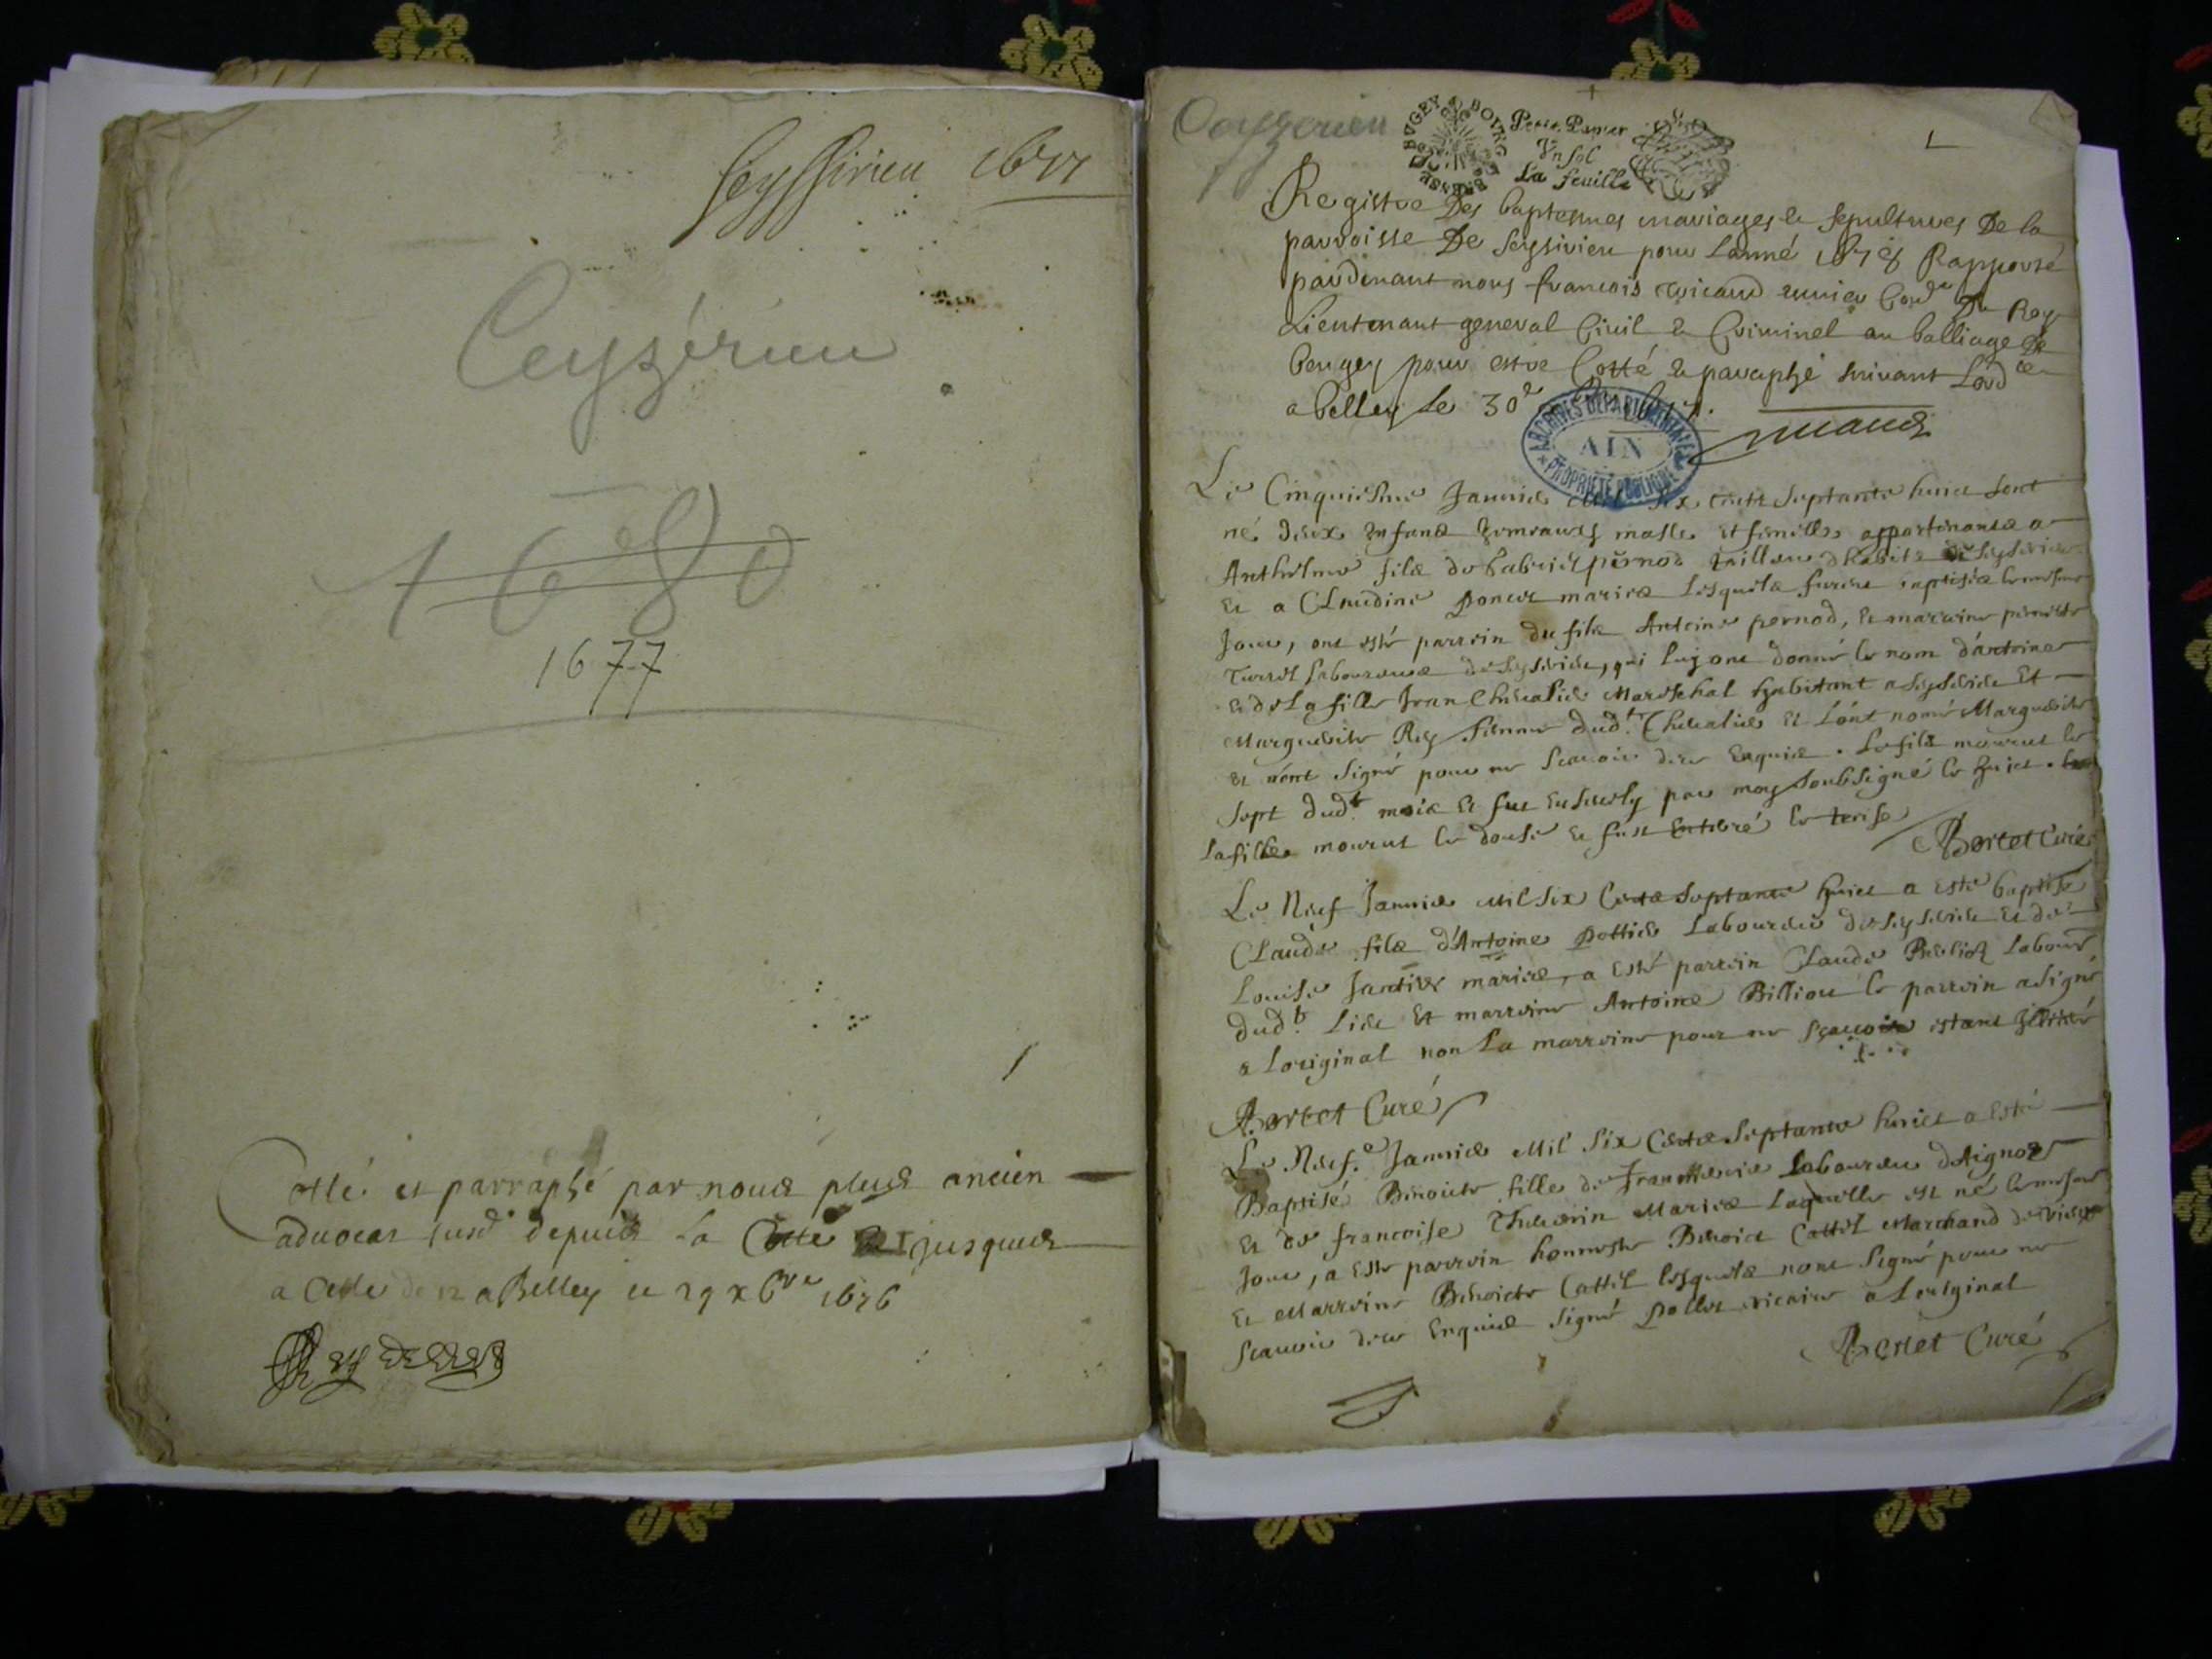 Seyssirieu 1677
Ceyzérieu
1680
1677
1
Cotté et parraphé par nous plus ancien
advocat susd depuis la Cotte 1 jusques
a Celle de 12 a Belley ce 29 xbre 1676
Ceyzerieu
BRESSE BUGEY BOURG
Petit Papier
Vn sol
La feuille
1
Registre Des baptesmes mariages & sepultures De la
parroisse De seyssirieu pour Lanné 1678 Rapporté
pardevant nous francois
Lieutenant general Civil & Criminel au balliage De
beugey pour estre Cotté & paraphé suivant Lordce
a belley le 30e
ARCHIVES DEPARTEMENTALES
AIN
PROPRIÉTÉ PUBLIQUE
Le Cinquiesme Januier mil six cents septante huict sont
né deux enfans masle et femelle appartenants a
Anthelme fils de Gabriel pernod
et a Claudine mariés lesquels furent baptisés le mesme
Jour, ont esté parrein du fils Antoine pernod, et marreine pernette
de Seyserieu, qui luy ont donné le nom d'Antoine
et de la fille Jean Chevalier Mareschal habitant a Seyserieu Et
Marguerite Rey femme dudt Chevalier et l'ont nomé Marguerite
et n'ont signé pour ne scavoir de ce enquis. Le fils mourut le
sept dudt mois et fut ensevely par moy soubsigné le huict.
La fille mourut le douse et fust enterré le treise
Bortet Curé
Le Neuf Januier mil six Cents septante huict a esté baptisé
Claude fils d'Antoine Pottier Laboureur de Seyserieu et de
Louise mariés, a esté parrein Claude Labour
dudt lieu et marreine Antoine Billiou le parrein a signé
a Loriginal non La marreine pour ne sçavoir estant
Bortet Curé
Le Neuf.e Januier Mil Six Cents Septante huict a esté
Baptisé Benoicte fille de Laboureur d'Aignoz
et de francoise Mariés Laquelle est né le mesme
Jour, a este parrein honneste Benoict Cattil Marchand de Vieux
et Marreine Benoicte Cattil lesquels nont signé pour ne
scavoir de ce Enquis signé vicaire a Loriginal
Bortet Curé